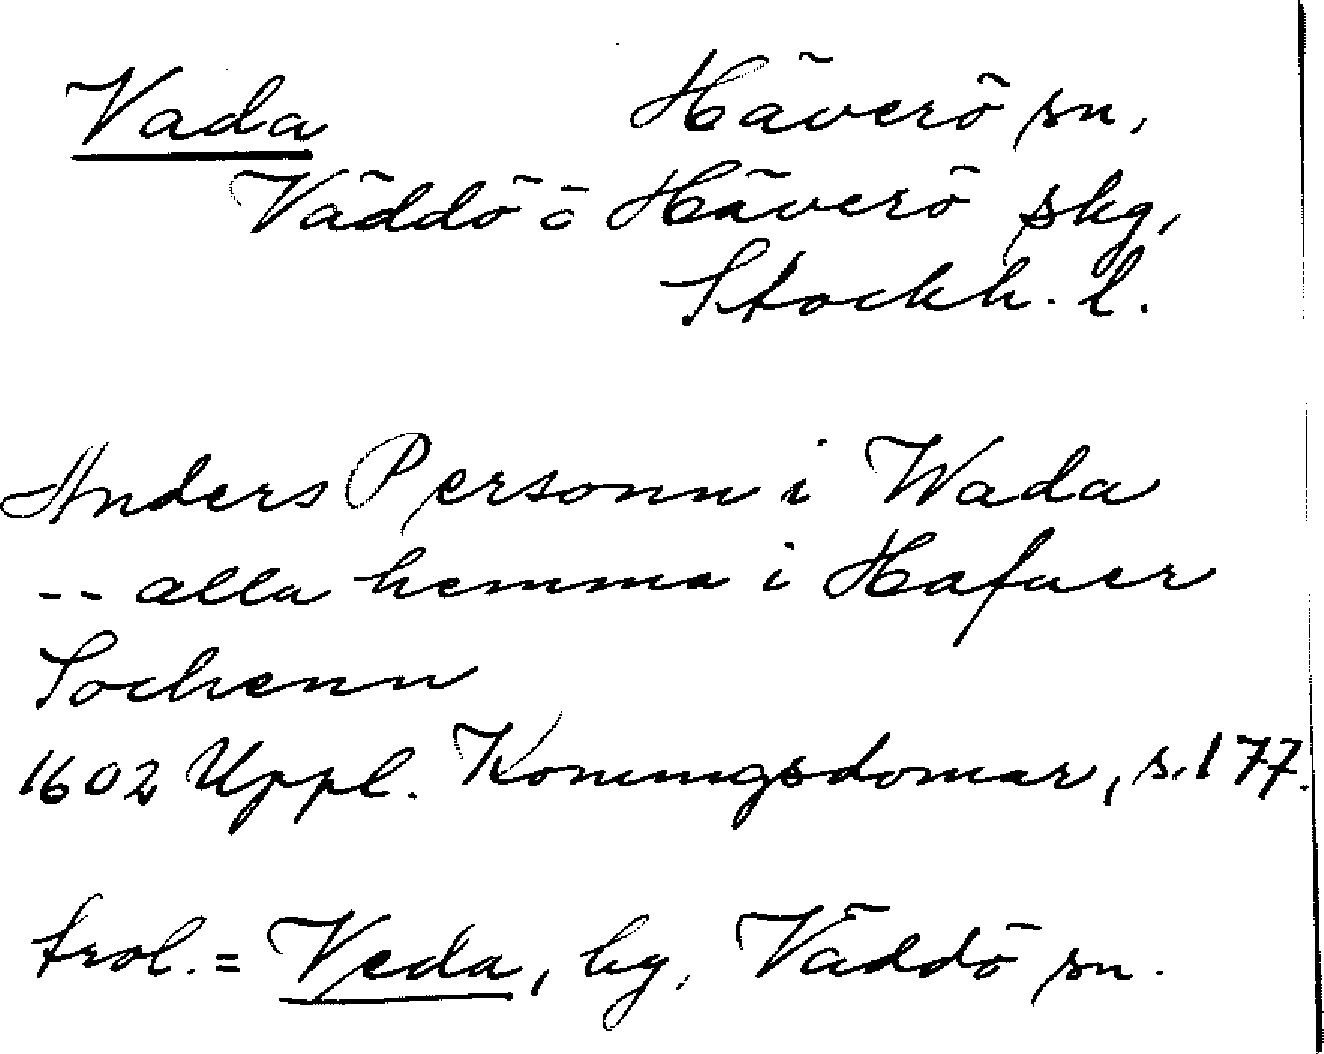 Vada Häverö sn,
Väddö o Häverö skg,
Stockh. l.
Anders Personn i Wada
-- alla hemma i Hafuer
Sochenn
1602 Uppl. Konungsdomar, s. 177.
trol. = Veda, by, Väddö sn.